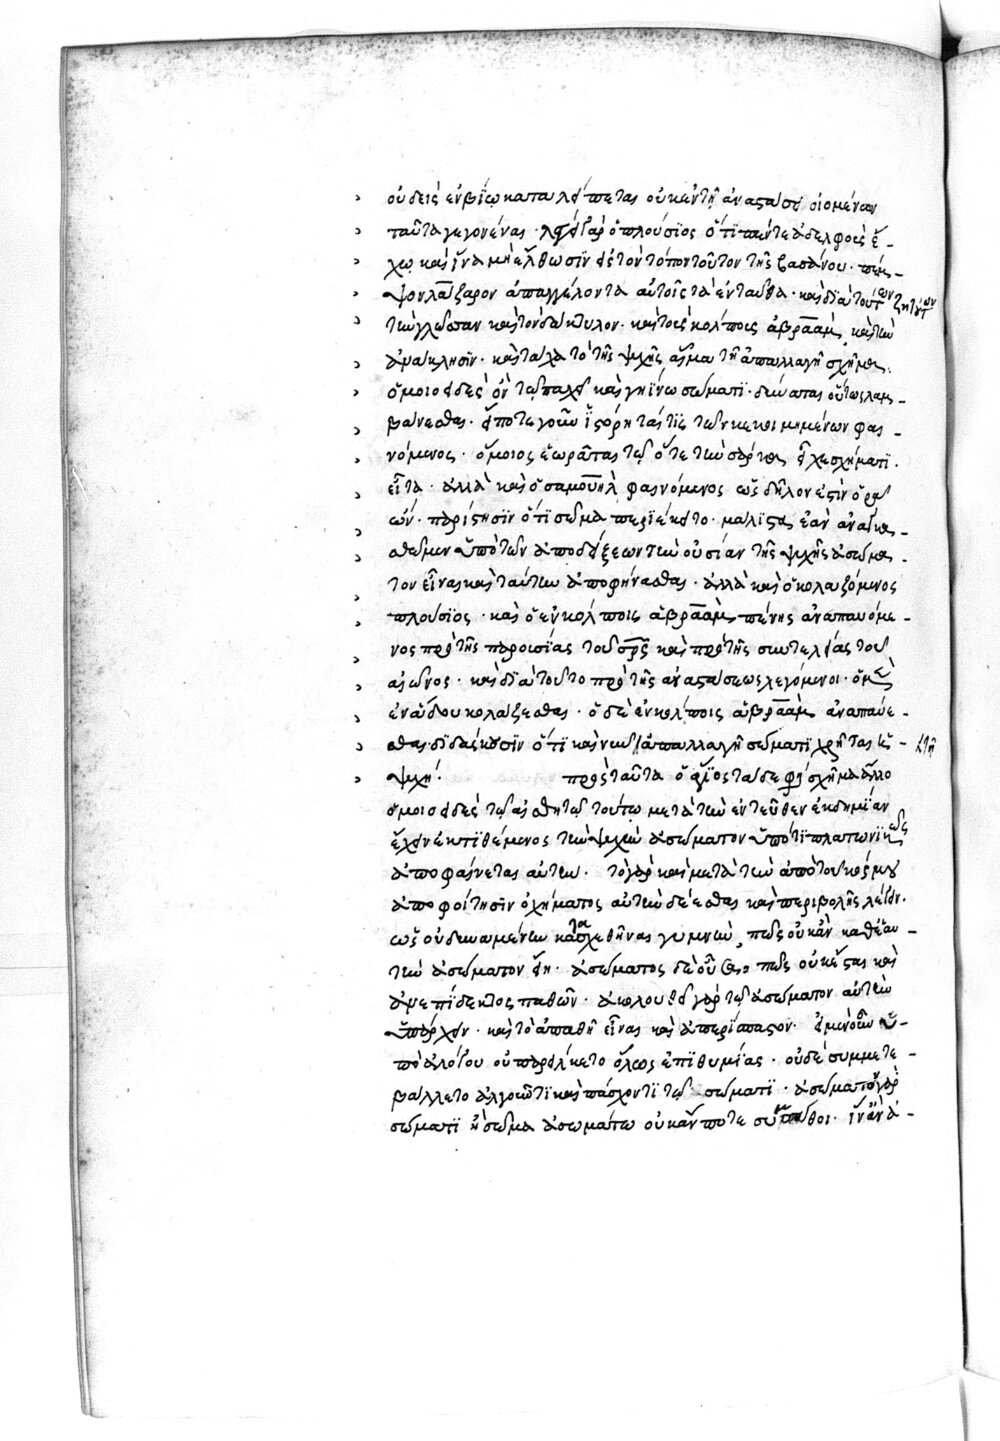 οὐδεὶς ἐν βίῳ καταλείπεται οὐκ ἐν τῇ ἀναστάσει οἰομένων
ταῦτα γεγονέναι· λέγει γὰρ ὁ πλούσϊος ὅτι πέντε ἀδελφοὺς ἔ-
χω καὶ ἵνα μὴ ἔλθωσϊν εἰς τὸν τόπον τοῦτον τῆς βασάνου· πέμ-
ψον λάζαρον ἀπαγγέλοντα αὐτοῖς τὰ ἐνταῦθα· καὶ διὰ τούτων ζητούντων
τὴν γλῶτταν καὶ τὸν δάκτυλον· καὶ τοὺς κόλπους ἀβραὰμ καὶ τὴν
ἀνάκλησϊν· καὶ τάχα τὸ τῆς ψυχῆς ἅμα τῇ ἀπαλλαγῇ σχῆμα
ὅμοιοειδὲς ὂν τῷ παχεῖ καὶ γηΐνω σώματϊ· δύναται οὕτως λαμ-
βάνεσθαι· εἴ ποτε γοῦν ἱστόρηταί τις τῶν κεκοιμημένων φαι-
νόμενος· ὅμοιος ἑώραται τῷ ὅτε τὴν σάρκα εἶχε σχήματϊ.
εἶτα· ἀλλὰ καὶ ὁ σαμουὴλ φαινόμενος ὡς δῆλόν ἐστϊν ὁρα-
ών· παρίστησϊν ὅτϊ σῶμα περϊέκειτο· μάλϊστα ἐὰν ἀναγκα-
σθῶμεν ὑπὸ τῶν ἀποδείξεων τὴν οὐσίαν τῆς ψυχῆς ἀσώμα-
τον εἶναι καὶ ταύτην ἀποφήνασθαι· ἀλλὰ καὶ ὁ κολαζόμενος
πλούσϊος· καὶ ὁ ἐν κόλποις ἀβραὰμ πένης ἀναπαυόμε-
νος πρὸ τῆς παρουσίας τοῦ σρς καὶ πρὸ τῆς συντελείας τοῦ
αἰῶνος· καὶ διὰ τοῦτο πρὸ τῆς ἀναστάσεως λεγόμενοι· ὁ μὲν
ἐν ἅδου κολάζεσθαι· ὁ δὲ ἐν κόλποις ἀβραὰμ ἀναπαύε-
σθαι· διδάσκουσϊν ὅτϊ καὶ νῦν ἐν τῇ ἀπαλλαγῇ σώματϊ χρῆται ἡ
ψυχή: πρὸς ταῦτα ὁ ἅγϊος τάδε φησί σχῆμα ἄλλο
ὅμοιοειδὲς τῷ αἰσθητῷ τούτω μετὰ τὴν ἐντεῦθεν ἐκδημίαν
ἔχειν ἐκτιθέμενος τὴν ψυχὴν ἀσώματον ὑπότϊ πλατωνϊκῶς
ἀποφαίνεται αὐτήν. τὸ γὰρ καὶ μετὰ τὴν ἀπὸ τοῦ κόσμου
ἀποφοίτησϊν ὀχήματος αὐτὴν δέεσθαι καὶ περιβολῆς λέγειν·
ὡς οὐ δυναμένην κατασχεθῆναι γυμνὴν, πῶς οὐκ ἂν καθ' ἑαυ-
τὴν ἀσώματον εἴη· ἀσώματος δὲ οὖσα, πῶς οὐκ ἔσται καὶ
ἀνεπίδεκτος παθῶν· ἀκολουθεῖ γὰρ τῷ ἀσώματον αὐτὴν
ὑπάρχειν· καὶ τὸ ἀπαθῆ εἶναι καὶ ἀπερίσπαστον· εἰ μὲν οὖν ὑ-
πὸ ἀλόγου οὐ παρείλκετο ὅλως ἐπϊθυμίας· οὐδὲ συμμετε-
βάλλετο ἀλγοῦντϊ καὶ πάσχοντϊ τῷ σώματϊ· ἀσώματον γὰρ
σώματϊ ἢ σῶμα ἀσωμάτω οὐκ ἄν ποτε συμπάθοι· ἵν' ἂν ἀ-